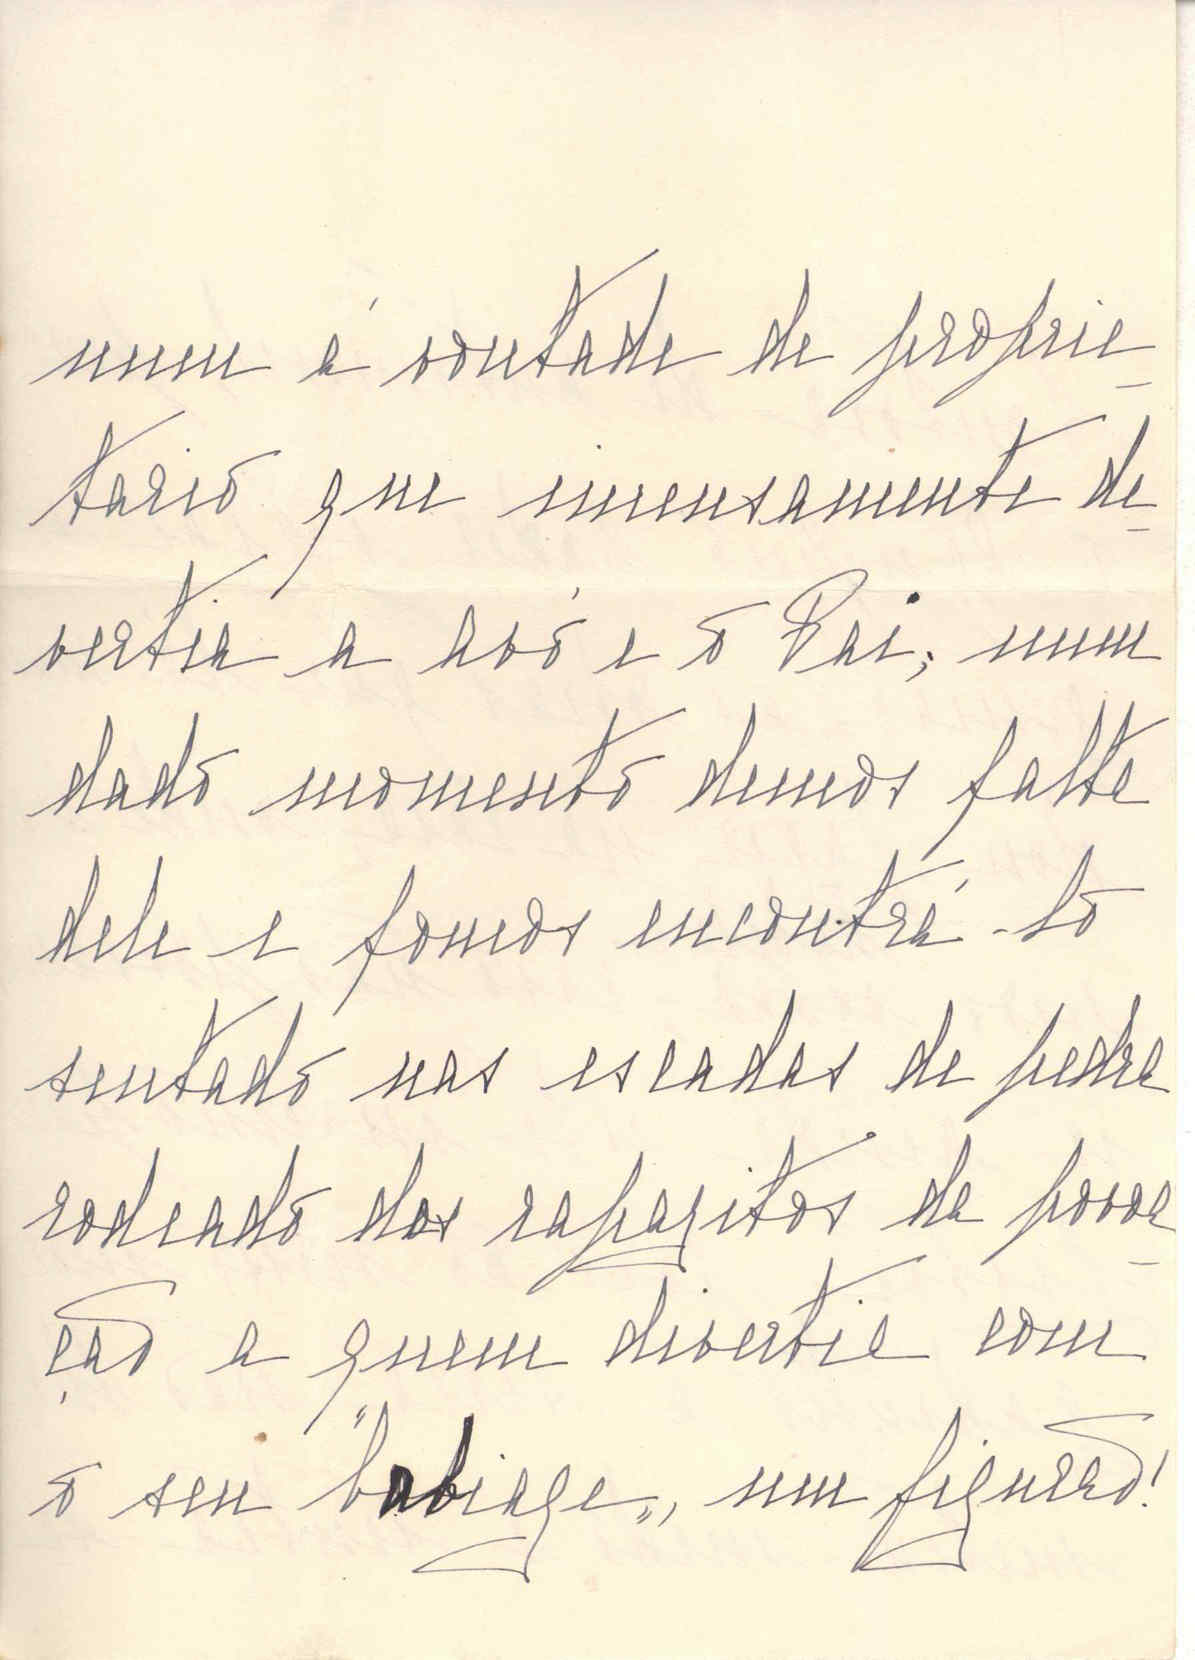 num à vontade de proprie-
tario que imensamente de-
vertia a Avó e o Pai; num
dado momento demos falta
dele e fomos encontrá-lo
sentado nas escadas de pedra
rodeado dos rapazitos da povoa-
ção a quem divertia com
o seu "babiage", um figurão!